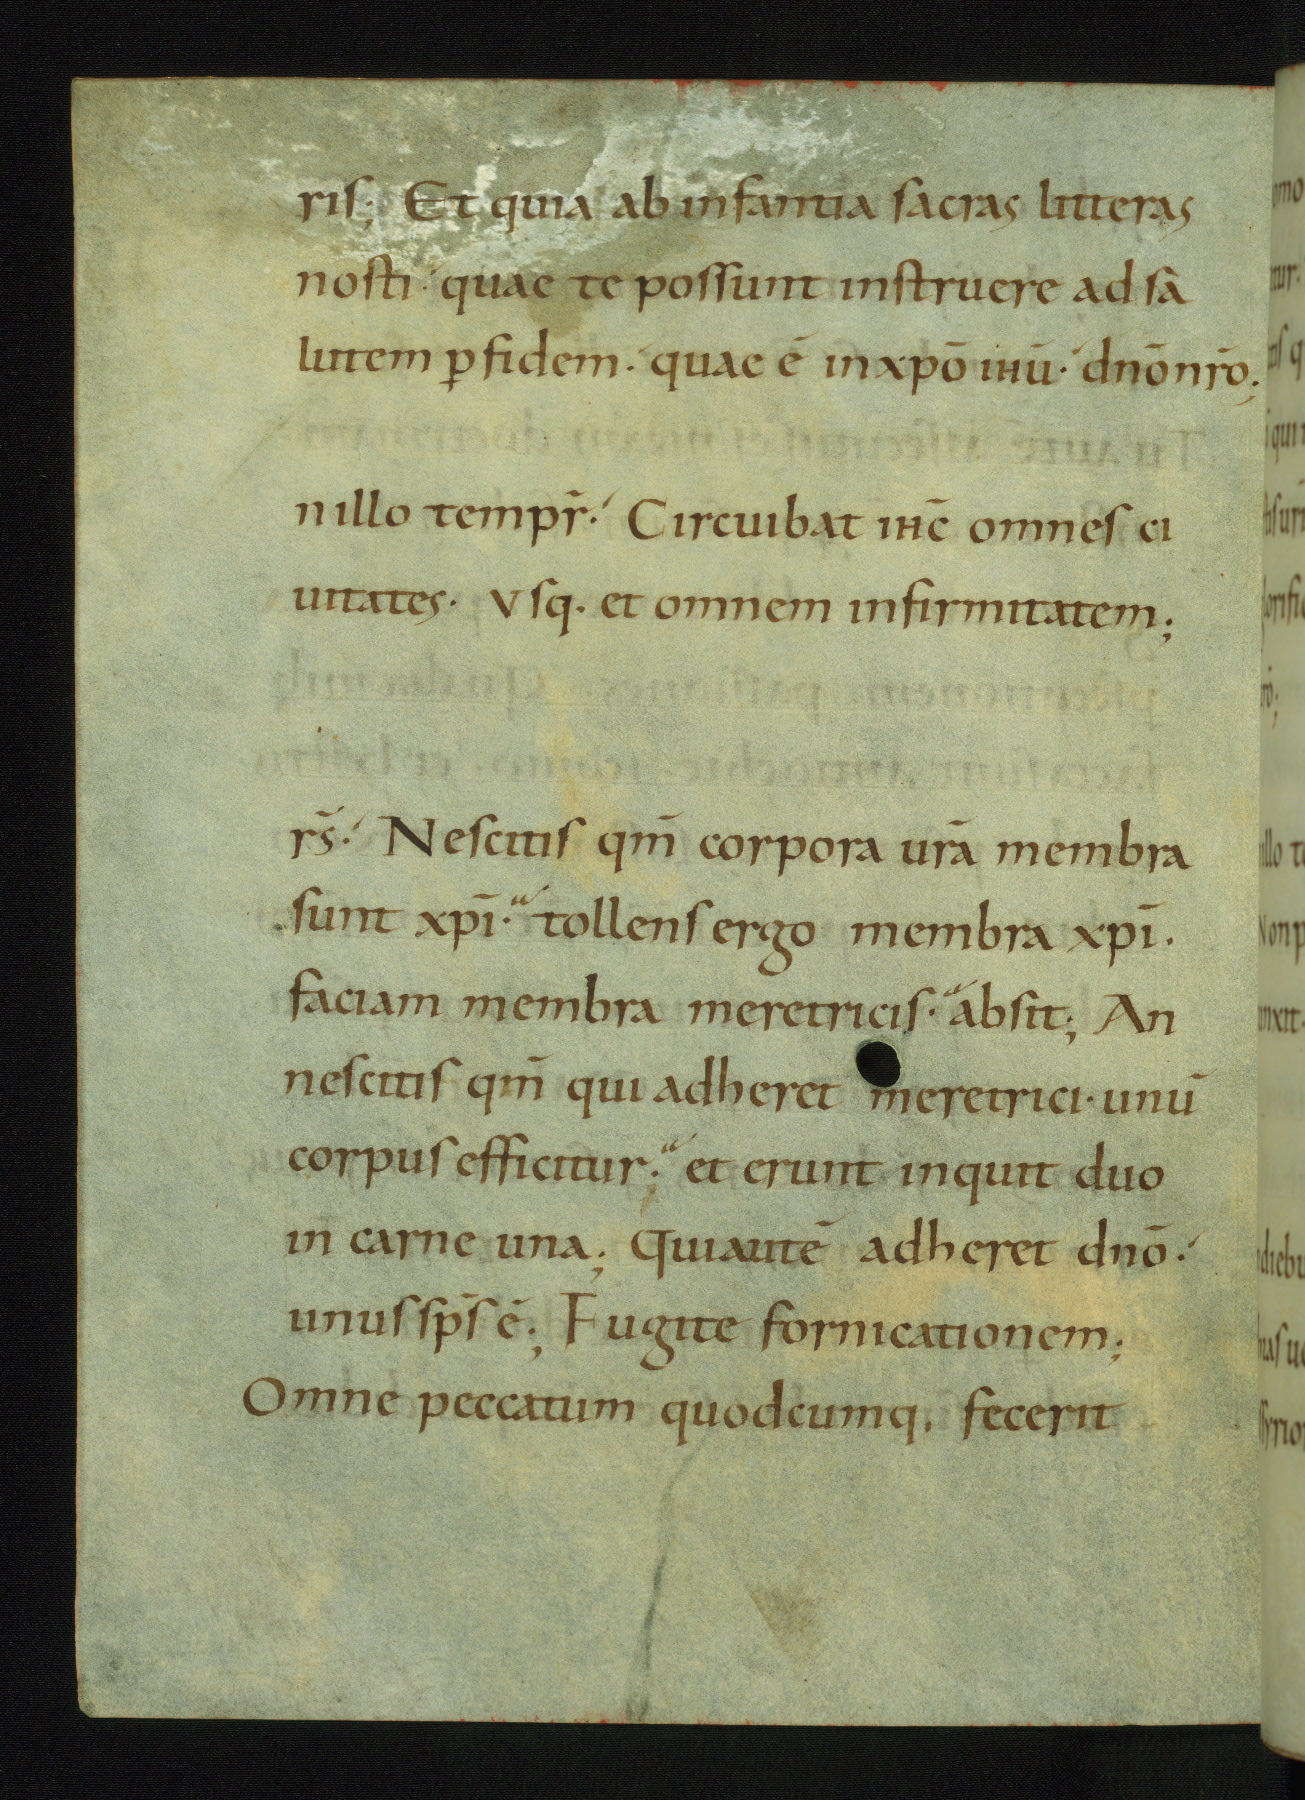 ris; Et quia ab infantia sacras litteras
nosti· quae te possunt instruere ad sa
lutem ꝑ fidem· quae ē in xp̄o ihū· dn̄o nr̄o;
n illo tempr̄· Circuibat ihc̄ omnes ci
uitates· Vsq· et omnem infirmitatem;
rs̄· Nescitis qm̄ corpora ur̄a membra
sunt xpī· tollens ergo membra xpī·
faciam membra meretricis· absit; An
nescitis qm̄ qui adheret meretrici· unū
corpus efficitur; et erunt inquit duo
in carne una; Qui autē adheret dn̄o·
unus sps̄ ē; Fugite fornicationem;
Omne peccatum quodcumq· fecerit